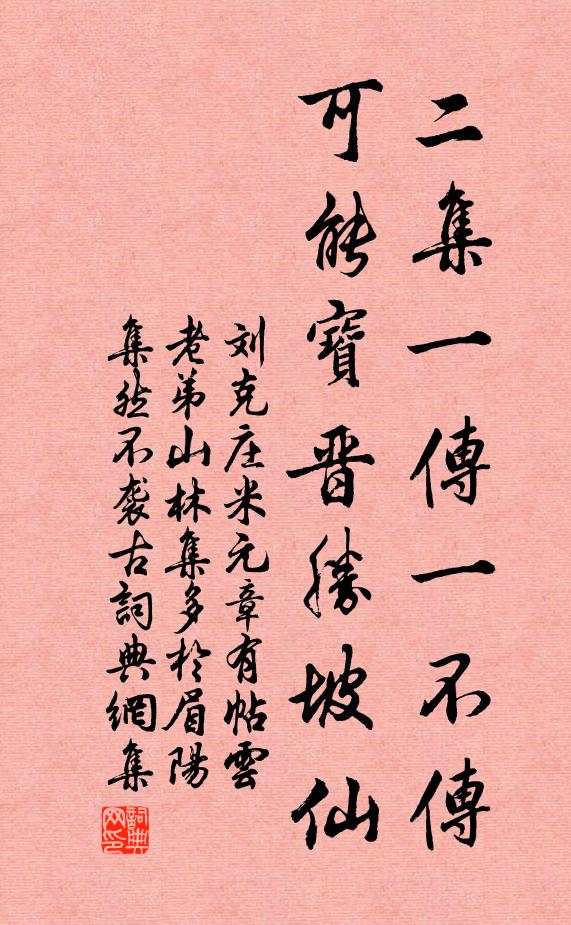 二集一傳一不傳
可能寶晉勝坡仙
刘克庄米元章有帖雲
老弟山林集多於眉陽
集然不袭古詞典網集
詞典网印